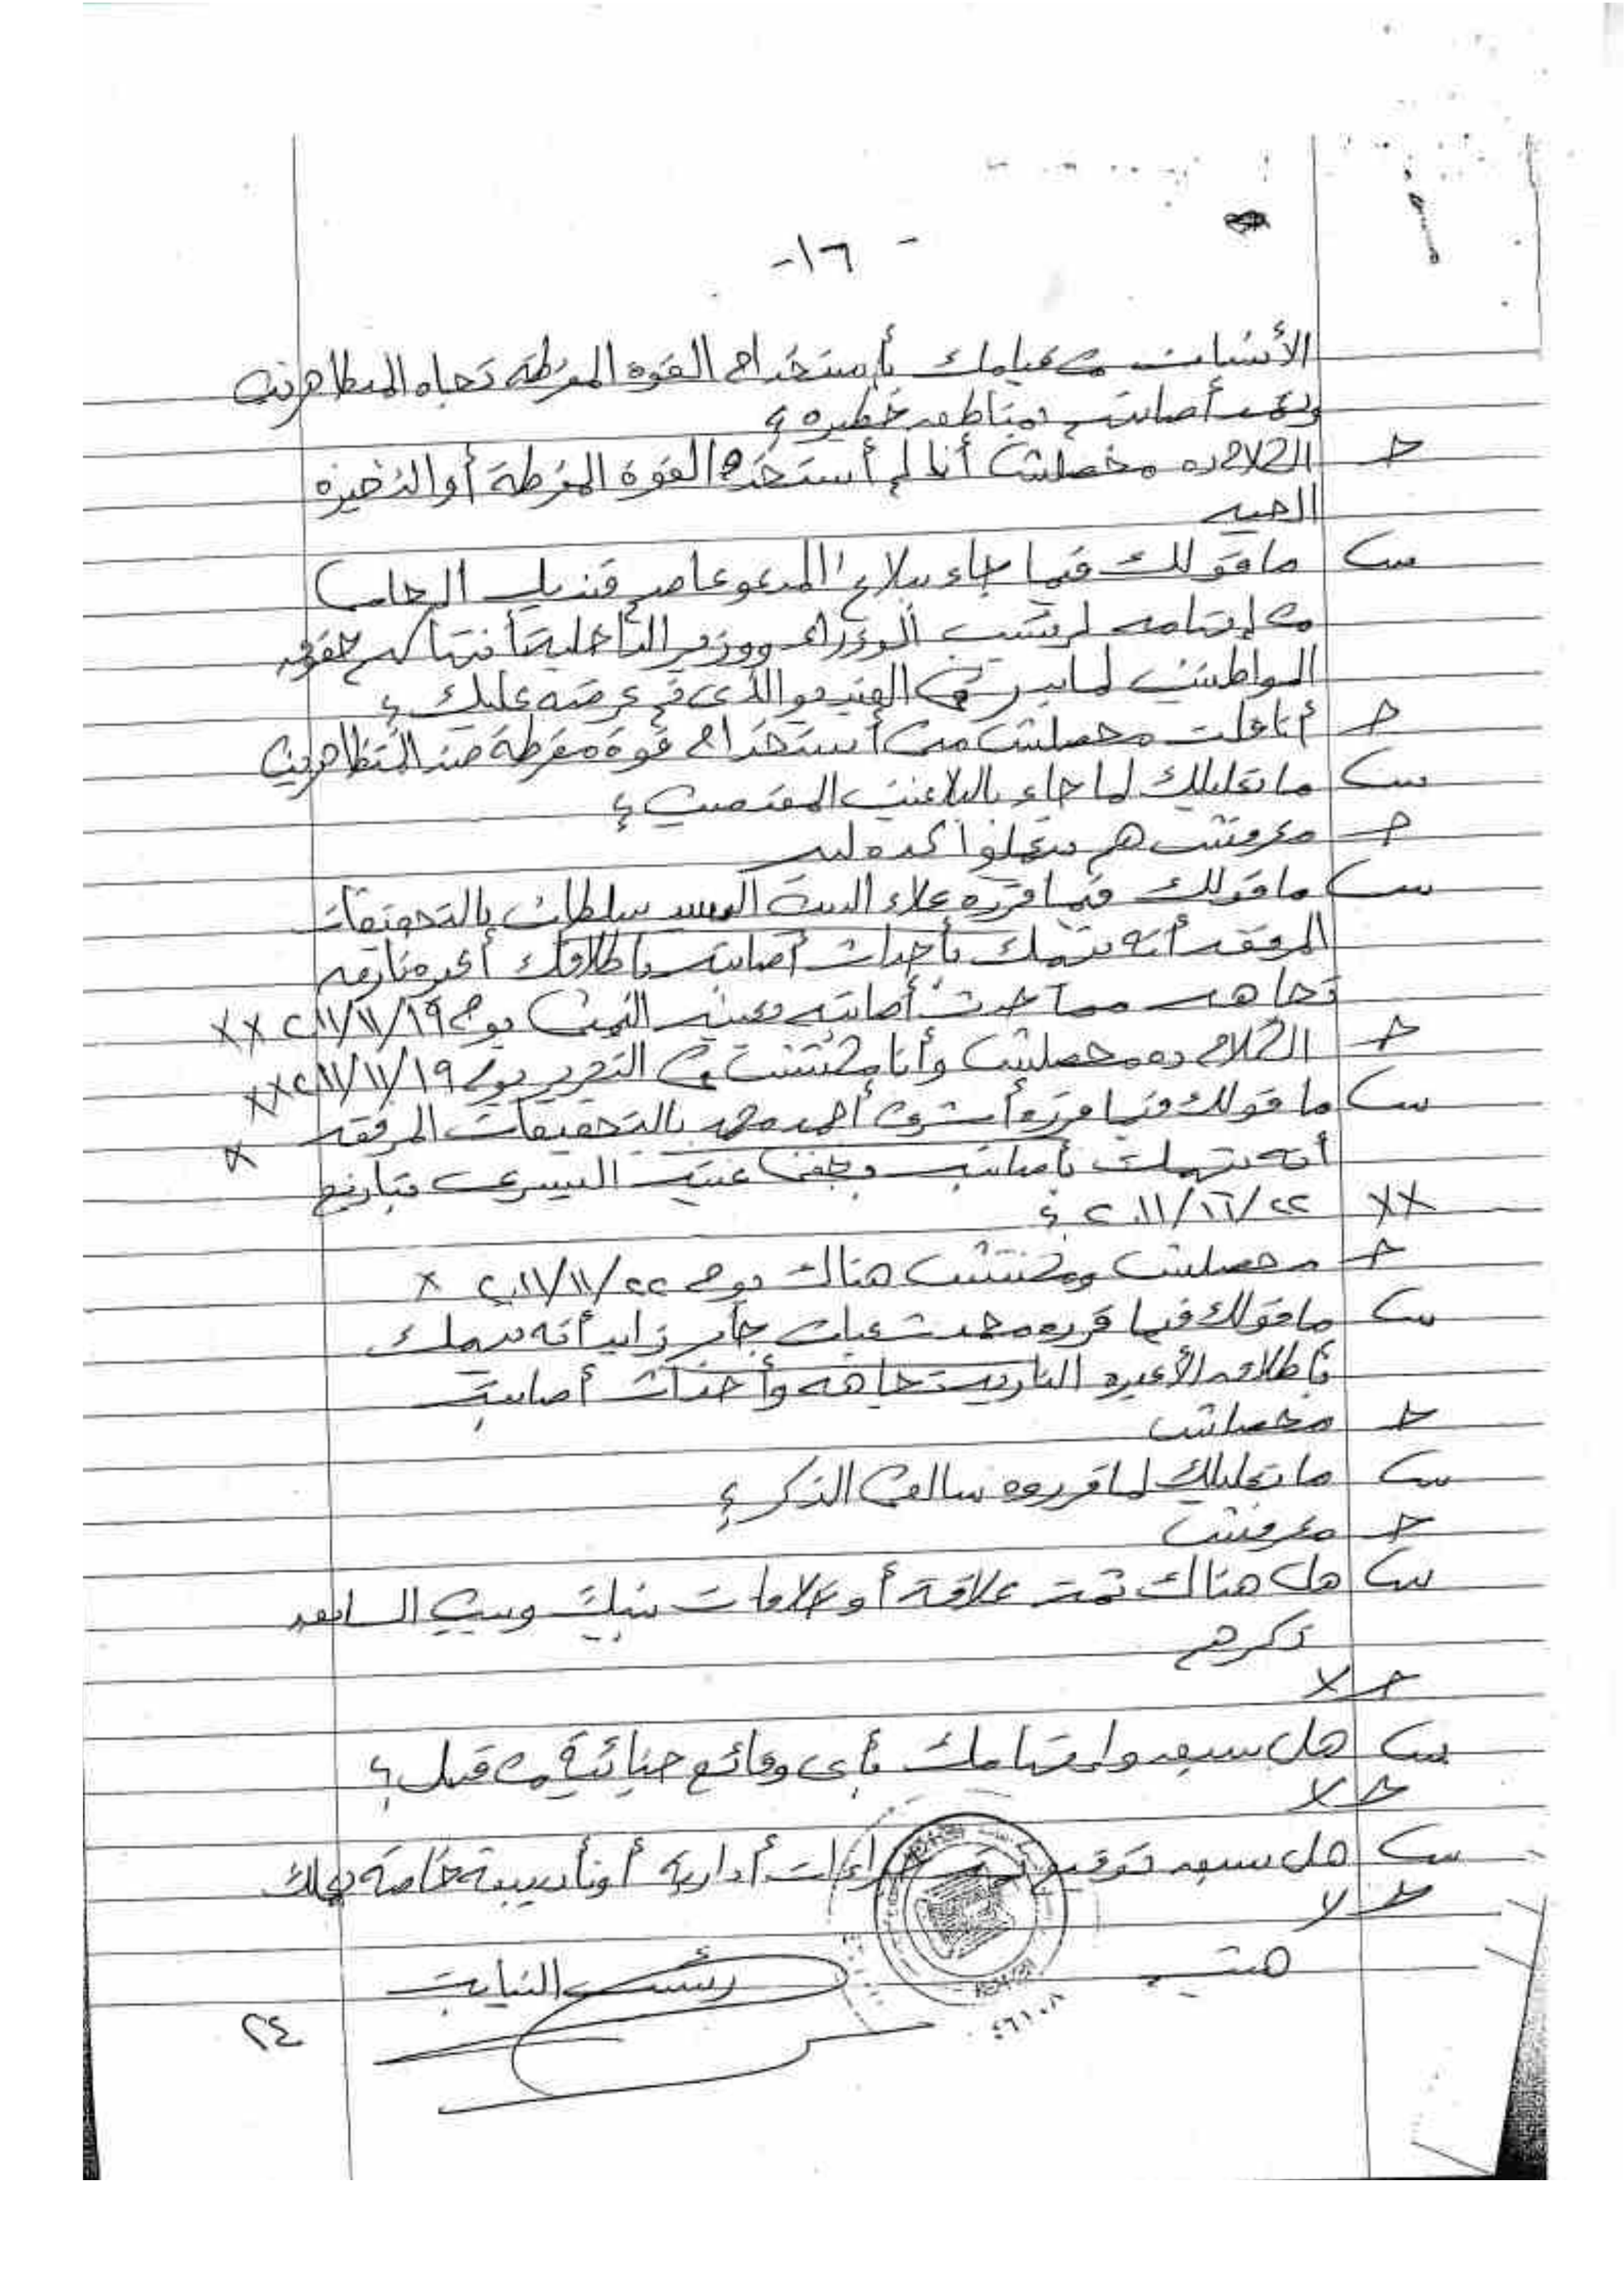 -١٦-
الأنسان من قيامك بأستخدام القوة المفرطة تجاه المتظاهرين
أصابتهم بمناطق خطيره ؟
ج الكلام ده محصلش أنا لم أستخدم القوة المفرطة أو الذخيره
الحيه
س ما قولك فيما جاء ببلاغ المدعو عاصم قنديل المحامى
من إتهامه لرئيس الوزراء ووزير الداخلية أنتهاكهم حقوق
المواطنين لما ظهر في الفيديو الذى تم عرضه عليك ؟
ج أنا قلت محصلش منى أستخدام قوة مفرطة ضد المتظاهرين
س ما تعليلك لما جاء بالبلاغين المقدمين ؟
ج معرفش هم بيعملوا كده ليه
س ما قولك فيما قرره علاء السيد سلطان بالتحقيقات
المرفقه أنه يتهمك بأحداث أصابته بأطلاقك أعيره ناريه
تجاهه مما أحدث أصابته بعينه اليمنى يوم ٢٠١١/١١/١٩ xx
ج الكلام ده محصلش وأنا مكنتش في التحرير يوم ٢٠١١/١١/١٩ xx
س ما قولك فيما قرره أشرف أحمد محمد بالتحقيقات المرفقه x
أنه يتهمك بأصابته بجفن عينه اليسرى بتاريخ
xx ٢٠١١/١١/٢٢ ؟
ج محصلش ومكنتش هناك يوم ٢٠١١/١١/٢٢ x
س ما قولك فيما قرره محمد شعبان جابر زايد أنه يتهمك
بأطلاق الأعيره الناريه تجاهه وأحداث أصابته
ج محصلش
س ما تعليلك لما قرروه سالفى الذكر ؟
ج معرفش
س هل هناك ثمة علاقة أو خلافات بينك وبين السابق
ذكرهم
ج لا
س هل سبق وإتهامك بأى وقائع جنائية من قبل ؟
ج لا
س هل سبق توقيع ثمة إجراءات أدارية أو تأديبية خاصة بعملك
ج لا
رئيس النيابة
٢٤